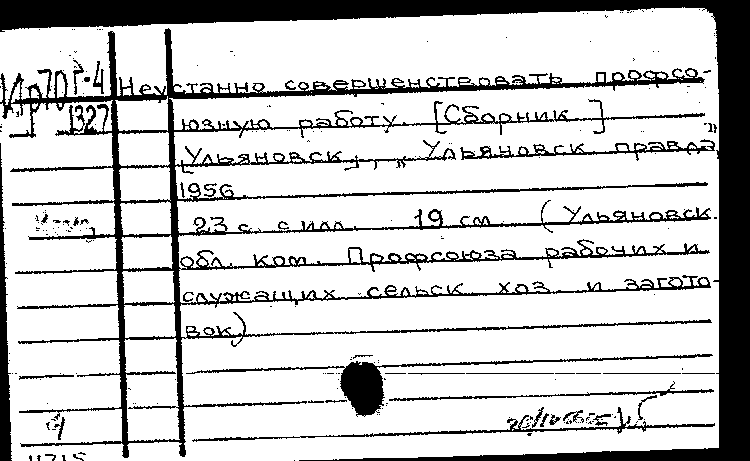 Ир70Г-4
1327
Неустанно совершенствовать профсо-
юзную работу. [Сборник]
[Ульяновск], "Ульяновск. правда",
1956.
23 с. с илл. 19 см. (Ульяновск.
обл. ком. Профсоюза рабочих и
служащих сельск. хоз. и загото-
вок)